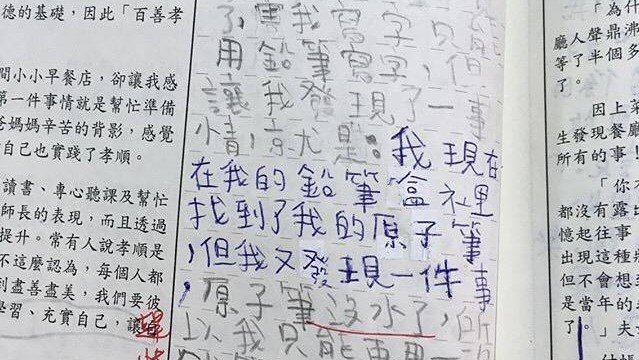 德的基礎，因此「百善孝
間小小早餐店，卻讓我感
第一件事情就是幫忙準備
爸媽辛苦的背影，感覺
自己也實踐了孝順。
讀書、專心聽課及幫忙
師長的表現，而且透過
提升。常有人說孝順是
不這麼認為，每個人都
到盡善盡美，我們要彼
學習、充實自己，讓自
了，害我寫字，只
用鉛筆寫字，
讓我發現了一事
情，京尤是。我現在
在我的鉛筆盒裡
找到了我的原子筆
，但我又發現一件事
，原子筆沒水了，所
以我只能再用
「為什
廳人聲鼎沸
等了半個多
了。
因上
生發現餐廳
所有的事！
「你
都沒有露
憶起往事
出現這種
但不會想
是當年的
。」夫